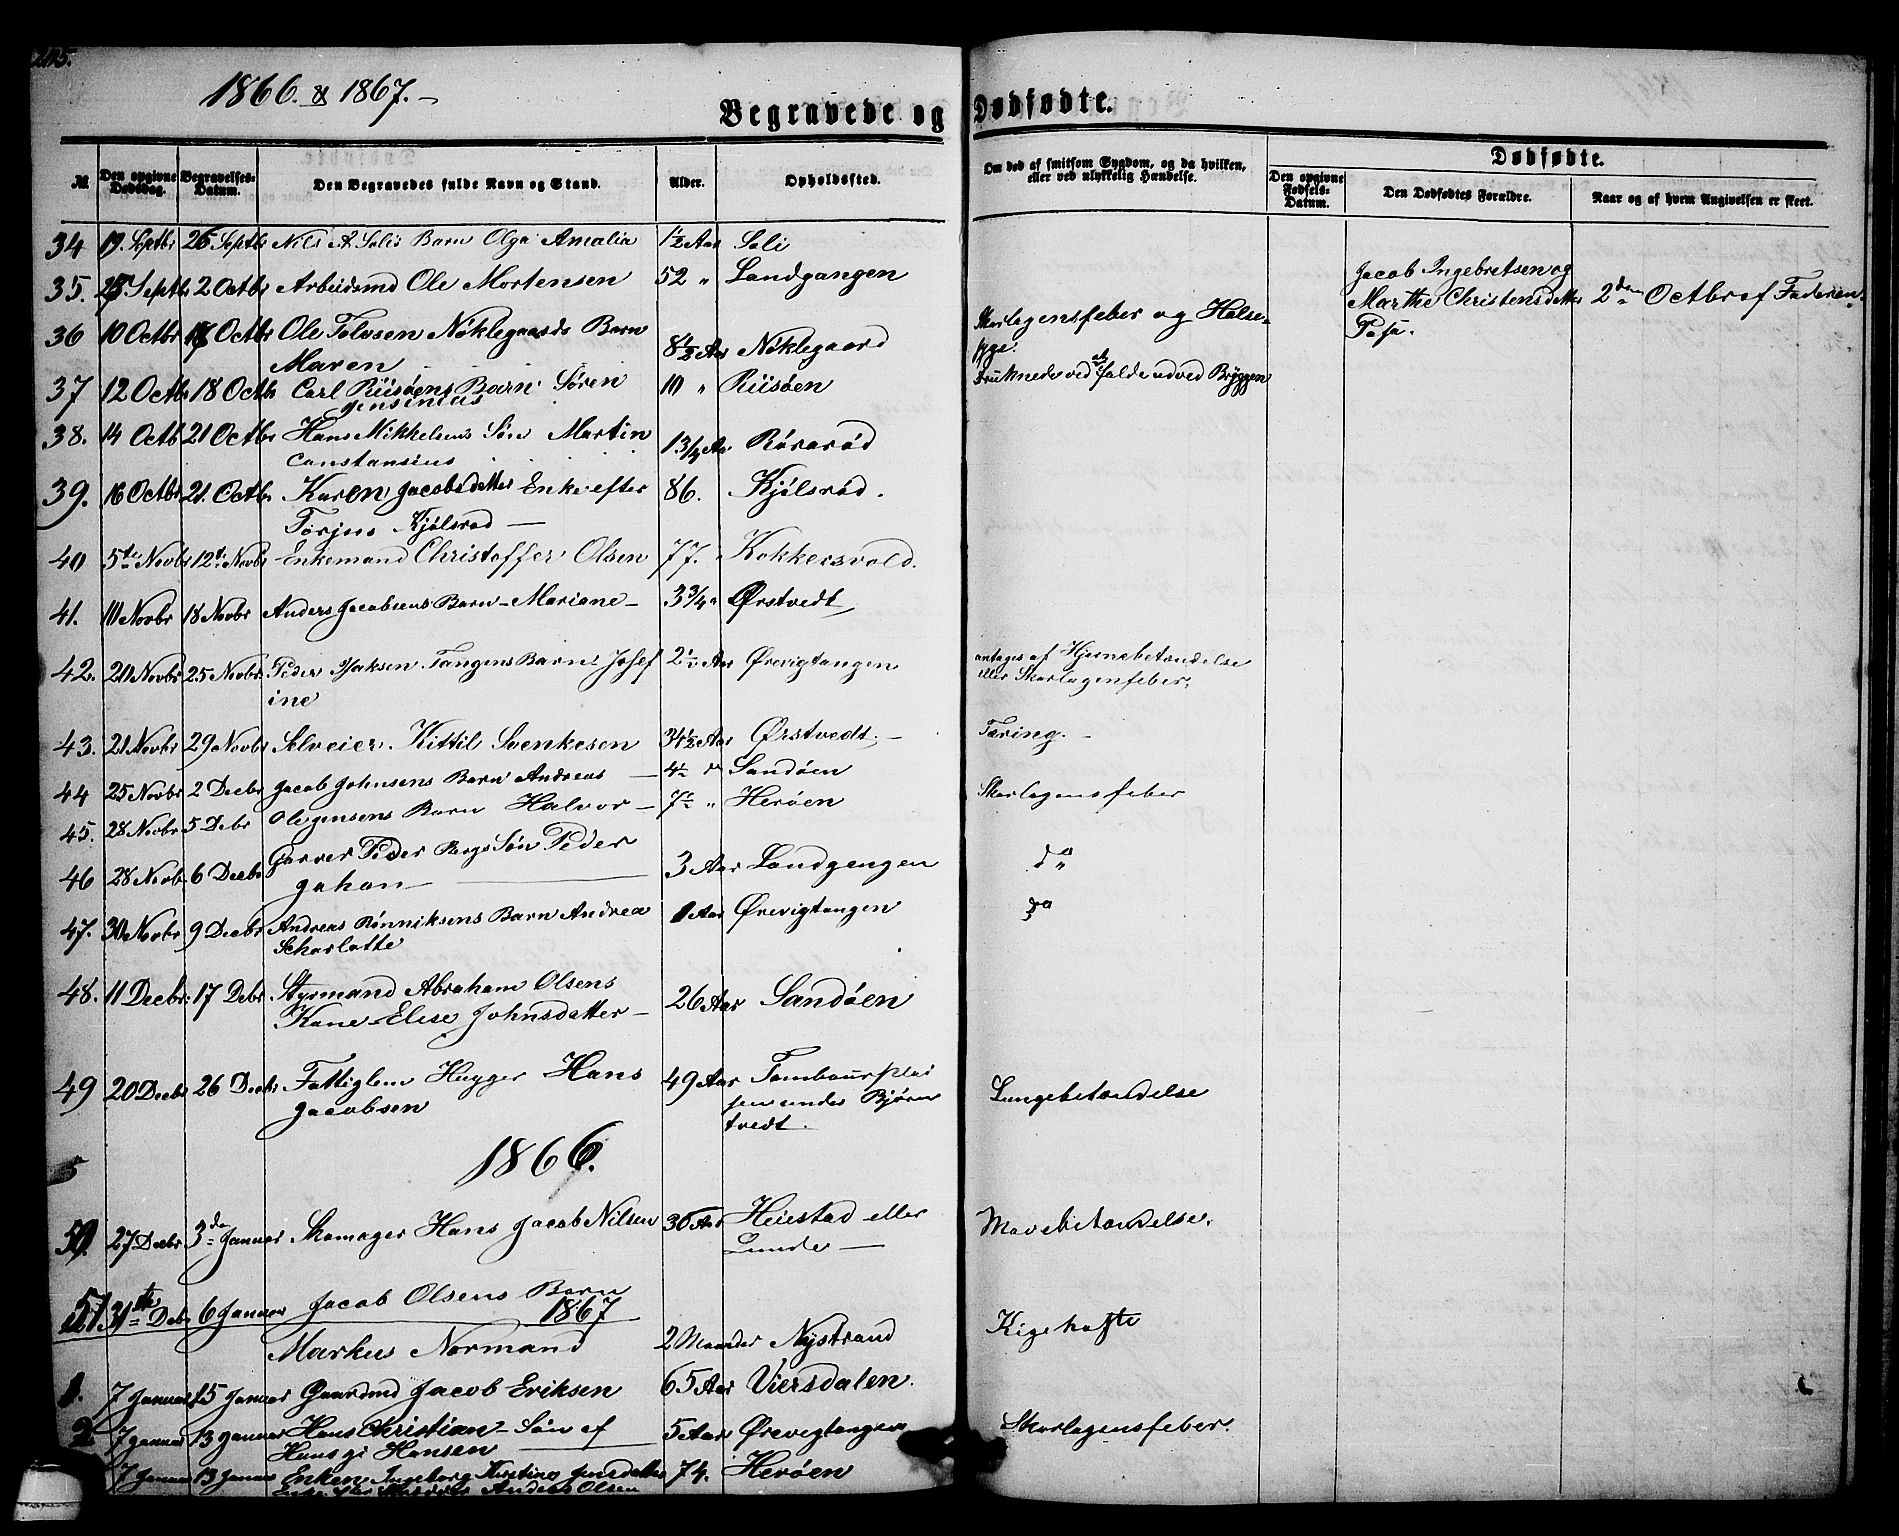 1866. & 1867.-
Begravede og Dødfødte.
№ Den opgivne Dødsdag. Begravelses-Datum. Den Begravedes fulde Navn og Stand. Alder. Opholdssted. Om død af smitsom Sygdom, og da hvilken, eller ved ulykkelig Hændelse. Dødfødte.
Den opgivne Fødsels-Datum. Den Dødfødtes Forældre. Naar og af hvem Angivelsen er skeet.
34 19. Septbr 26 Septbr Nils A. Salis Barn Olga Amalia 1½ Aar Sali
35. Septbr 2 Octbr Arbeidsmd Ole Mortensen 52 " Landgangen
Jacob Ingebretsen og
Marthe Christensdatter 2den Octbr af Faderen.
36 10 Octbr Octbr Ole Tolvsen Nöklegaards Barn
Maren 8½ Aar Nöklegaard Skarlagensfeber og Halse-
syge.
37 12 Octbr 18 Octbr Carl Riisöens Barn Sören
Jensinius 10 " Riisöen Druknede ved at falde ud ved Bryggen
38. 14 Octb 21 Octbr Hans Mikkelsens Sön Martin
Constansius 13/4 Aar Röraröd
39. 16 Octbr 21. Octbr Karen Jacobsdatter Enke efter
Torjus Kjölsröd — 86. Kjölsröd.
40 5te Novbr 12te Novbr Enkemand Christoffer Olsen 77. Kokkersvold.
41. 10 Novbr 18 Novbr Anders Jacobsens Barn - Mariane - 3¾ " Ørstvedt
42. 20 Novbr 25 Novbr Peder Isaksen Tangens Barn Josef
ine 2½ Aar Ørevigtangen antages af Hjernebetændelse
eller Skarlagensfeber.
43. 21 Novbr 29 Novbr Selveier. Kittil Svenkesen 34½ Aar Ørstvedt. - Tæring. -
44 25 Novbr 2 Decbr Jacob Johnsens Barn Andreas — 4½ Sandöen
45. 28 Novbr 5 Debr Ole Jensens Barn Halvor - 7½ " Heröen Skarlagensfeber
46 28 Novbr 6 Decbr Garver Peder Bergs Sön Peder
Johan — 3 Aar Landgangen do
47. 30 Novbr 9 Decbr Andreas Rönniksens Barn Andrea
Scharlotte 1 Aar Ørevigtangen do
48. 11 Decbr 17 Debr Styrmand Abraham Olsens
Kone - Elise Johnsdatter - 26 Aar Sandöen
49 20 Decbr 26 Decbr Fattiglem Hugger Hans
Jacobsen 49 Aar Tambourplad
sen under Bjørn
tvedt. Lungebetændelse
1866.
50. 27 Decbr 3de Januar Skomager Hans Jacob Nilsen 36 Aar Heiestad eller
Lunde — Mavebetændelse.
51 31te Debr 6 Januar Jacob Olsens Barn
1867
Markus Normand 2 Maaneder Nystrand Kigehoste
1. 7 Januar 15 Januar Gaardmd Jacob Eriksen 65 Aar Viersdalen.
2 7 Januar 13 Januar Hans Christian - Sön af
Hans Hansen — 5 Aar Ørevigtangen Skarlagensfeber.
7 Januar 13 Januar Enken Ingeborg Kirstine Jensdatter 74. Heröen
Anders Olsen